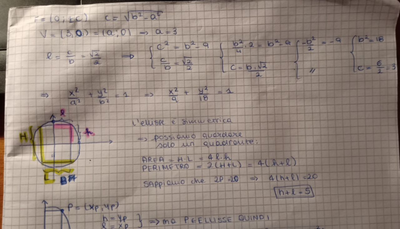 c = √b² - a²
V = (3,0) = (a,0) ⇒ a = 3
e = c/b = √2/2 ⇒ { c² = b² - 9 { b²/4 · 2 = b² - 9 { -b²/2 = -9
c/b = √2/2 c = b√2/2 //
⇒ x²/a² + y²/b² = 1 ⇒ x²/9 + y²/18 = 1
L'ellisse è simmetrica
⇒ possiamo guardare
solo un quadrante.
AREA = H·L = 4l·h
PERIMETRO = 2(H+L) = 4(h+l)
SAPPIAMO che 2P = 20 ⇒ 4(h+l) = 20
h+l = 5
P = (xp, yp)
h = yp
l = xp } ⇒ ma P ∈ ELLISSE QUINDI